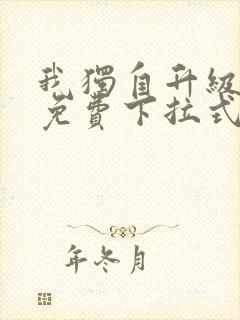 我獨自升級
免費下拉式
年冬月